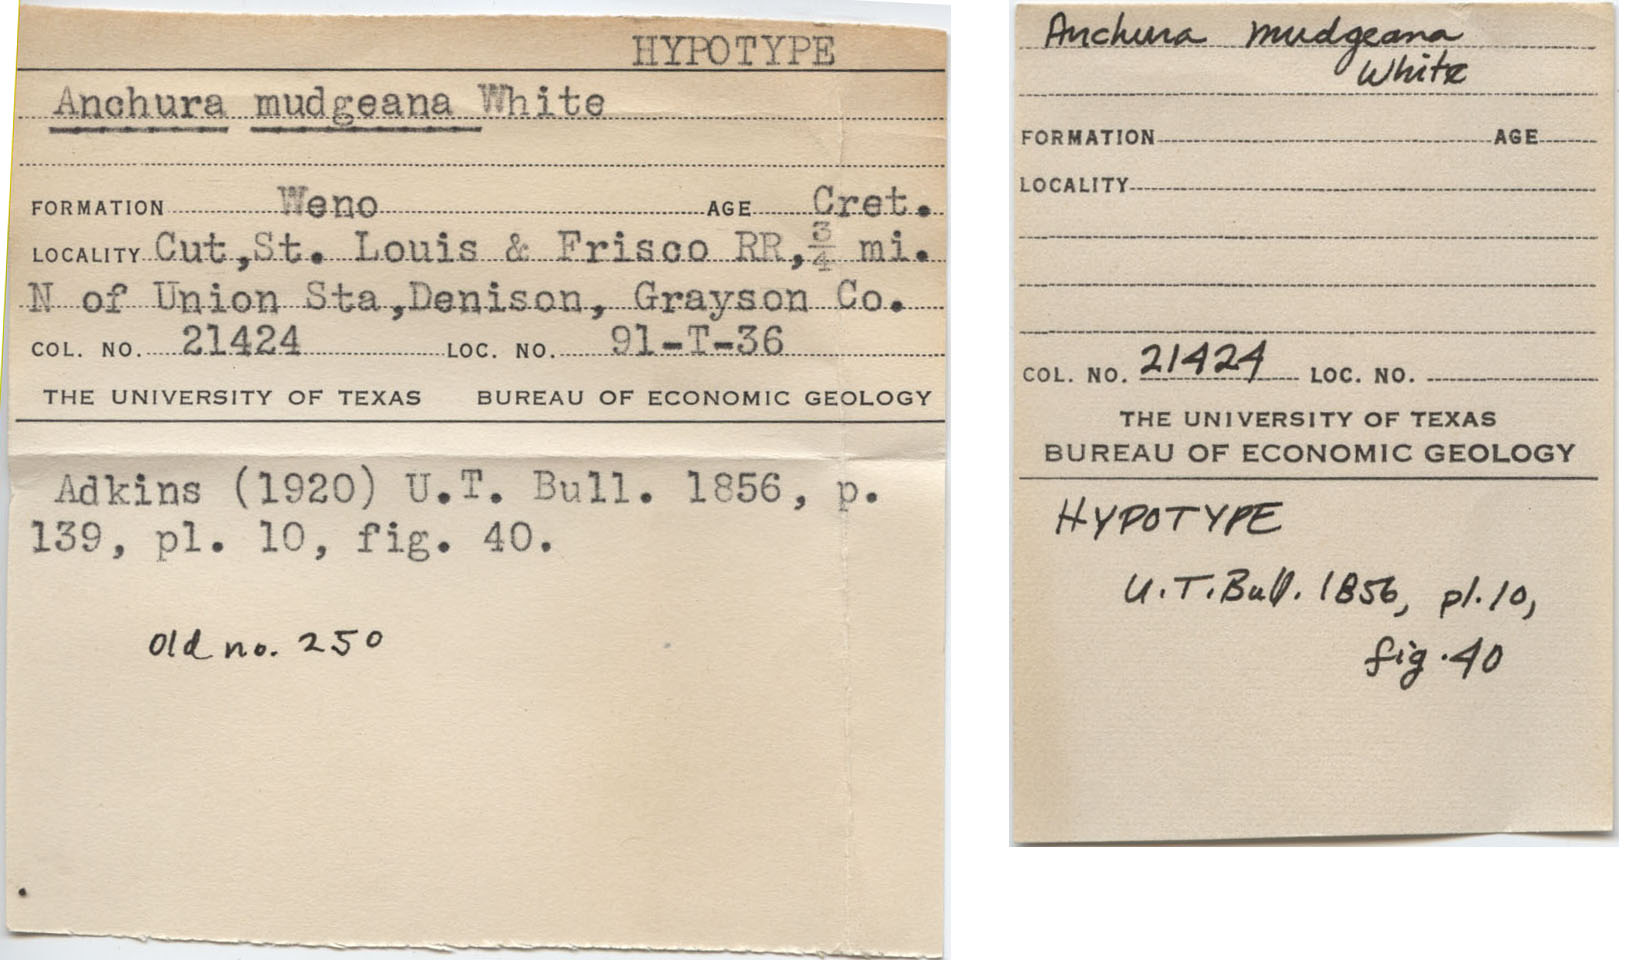 HYPOTYPE
Anchura mudgeana White
FORMATION Weno AGE Cret.
LOCALITY Cut, St. Louis & Frisco RR, 3/4 mi.
N of Union Sta, Denison, Grayson Co.
COL. NO. 21424 LOC. NO. 91-T-36
THE UNIVERSITY OF TEXAS BUREAU OF ECONOMIC GEOLOGY
Adkins (1920) U.T. Bull. 1856, p.
139, pl. 10, fig. 40.
Old no. 250
Anchura mudgeana
White
FORMATION AGE
LOCALITY
COL. NO. 21424 LOC. NO.
THE UNIVERSITY OF TEXAS
BUREAU OF ECONOMIC GEOLOGY
HYPOTYPE
U.T. Bull. 1856, pl. 10,
fig. 40